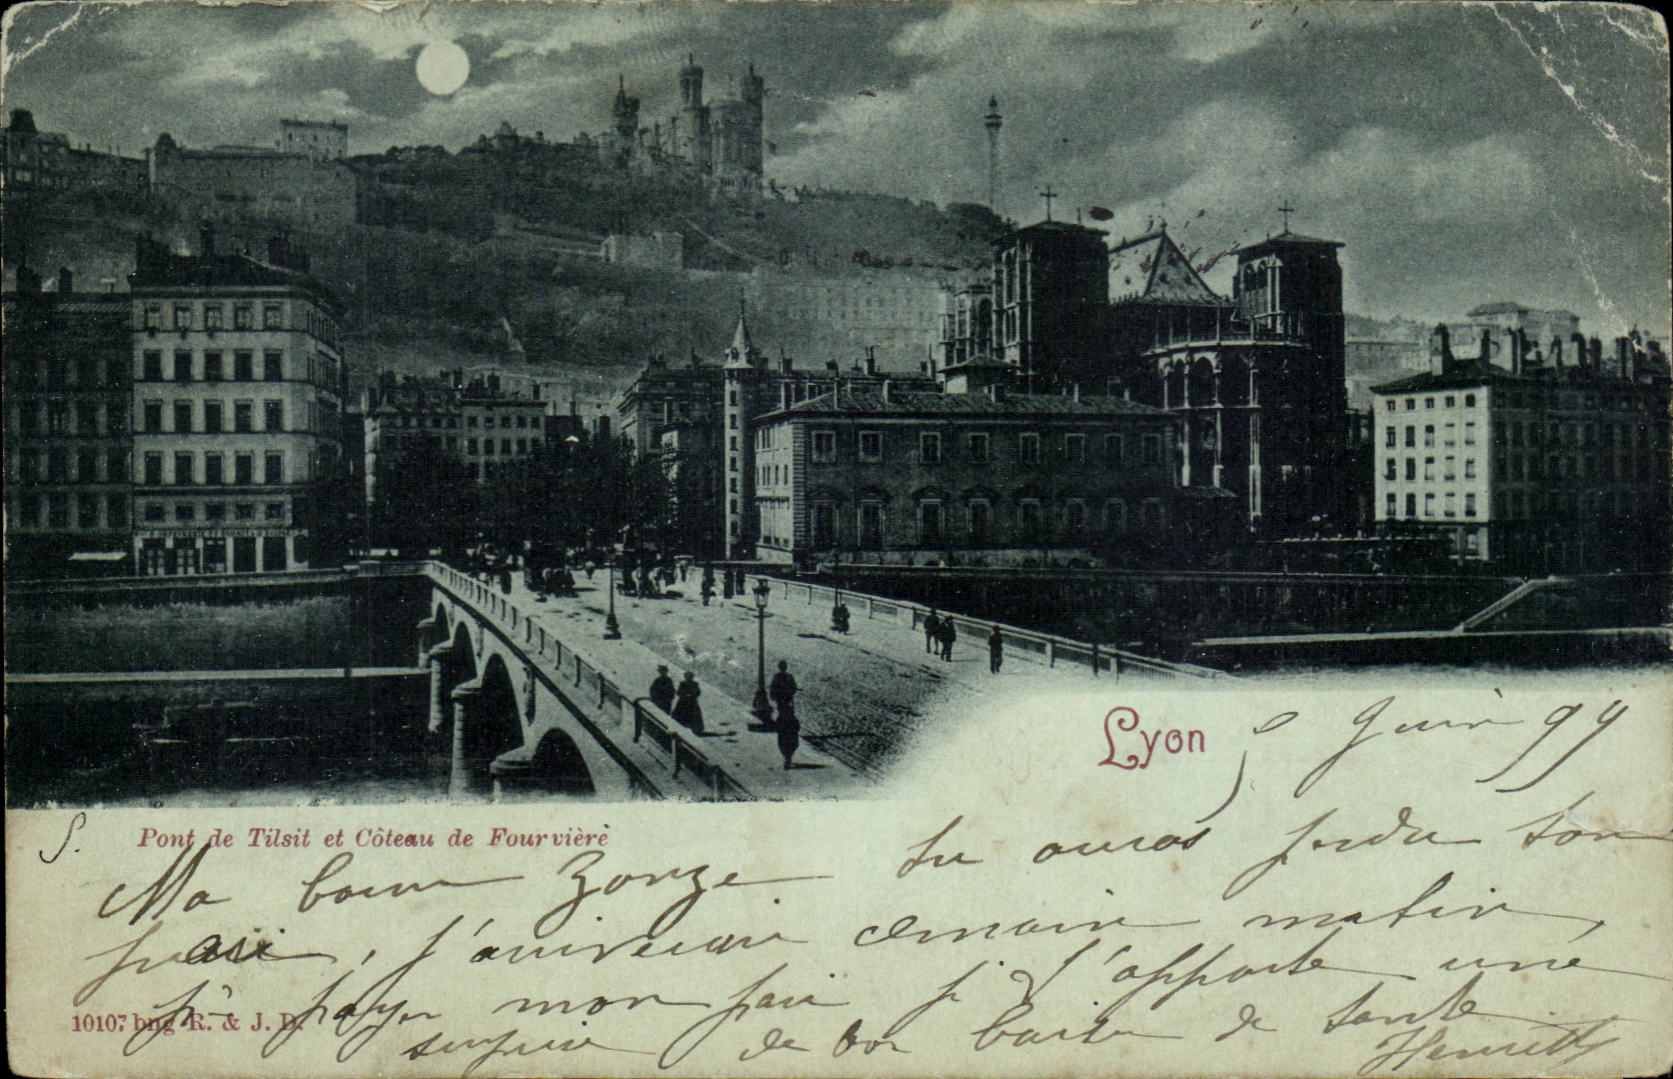 Lyon
9 Juin 99
Pont de Tilsit et Côteau de Fourvière
Ma bonne Zonze tu auras perdu ton
pari, j'arriverai demain matin,
pr payer mon pari je t'apporte une
surprise de bon baiser de tante
Henriette
10107 bng R. & J. D.